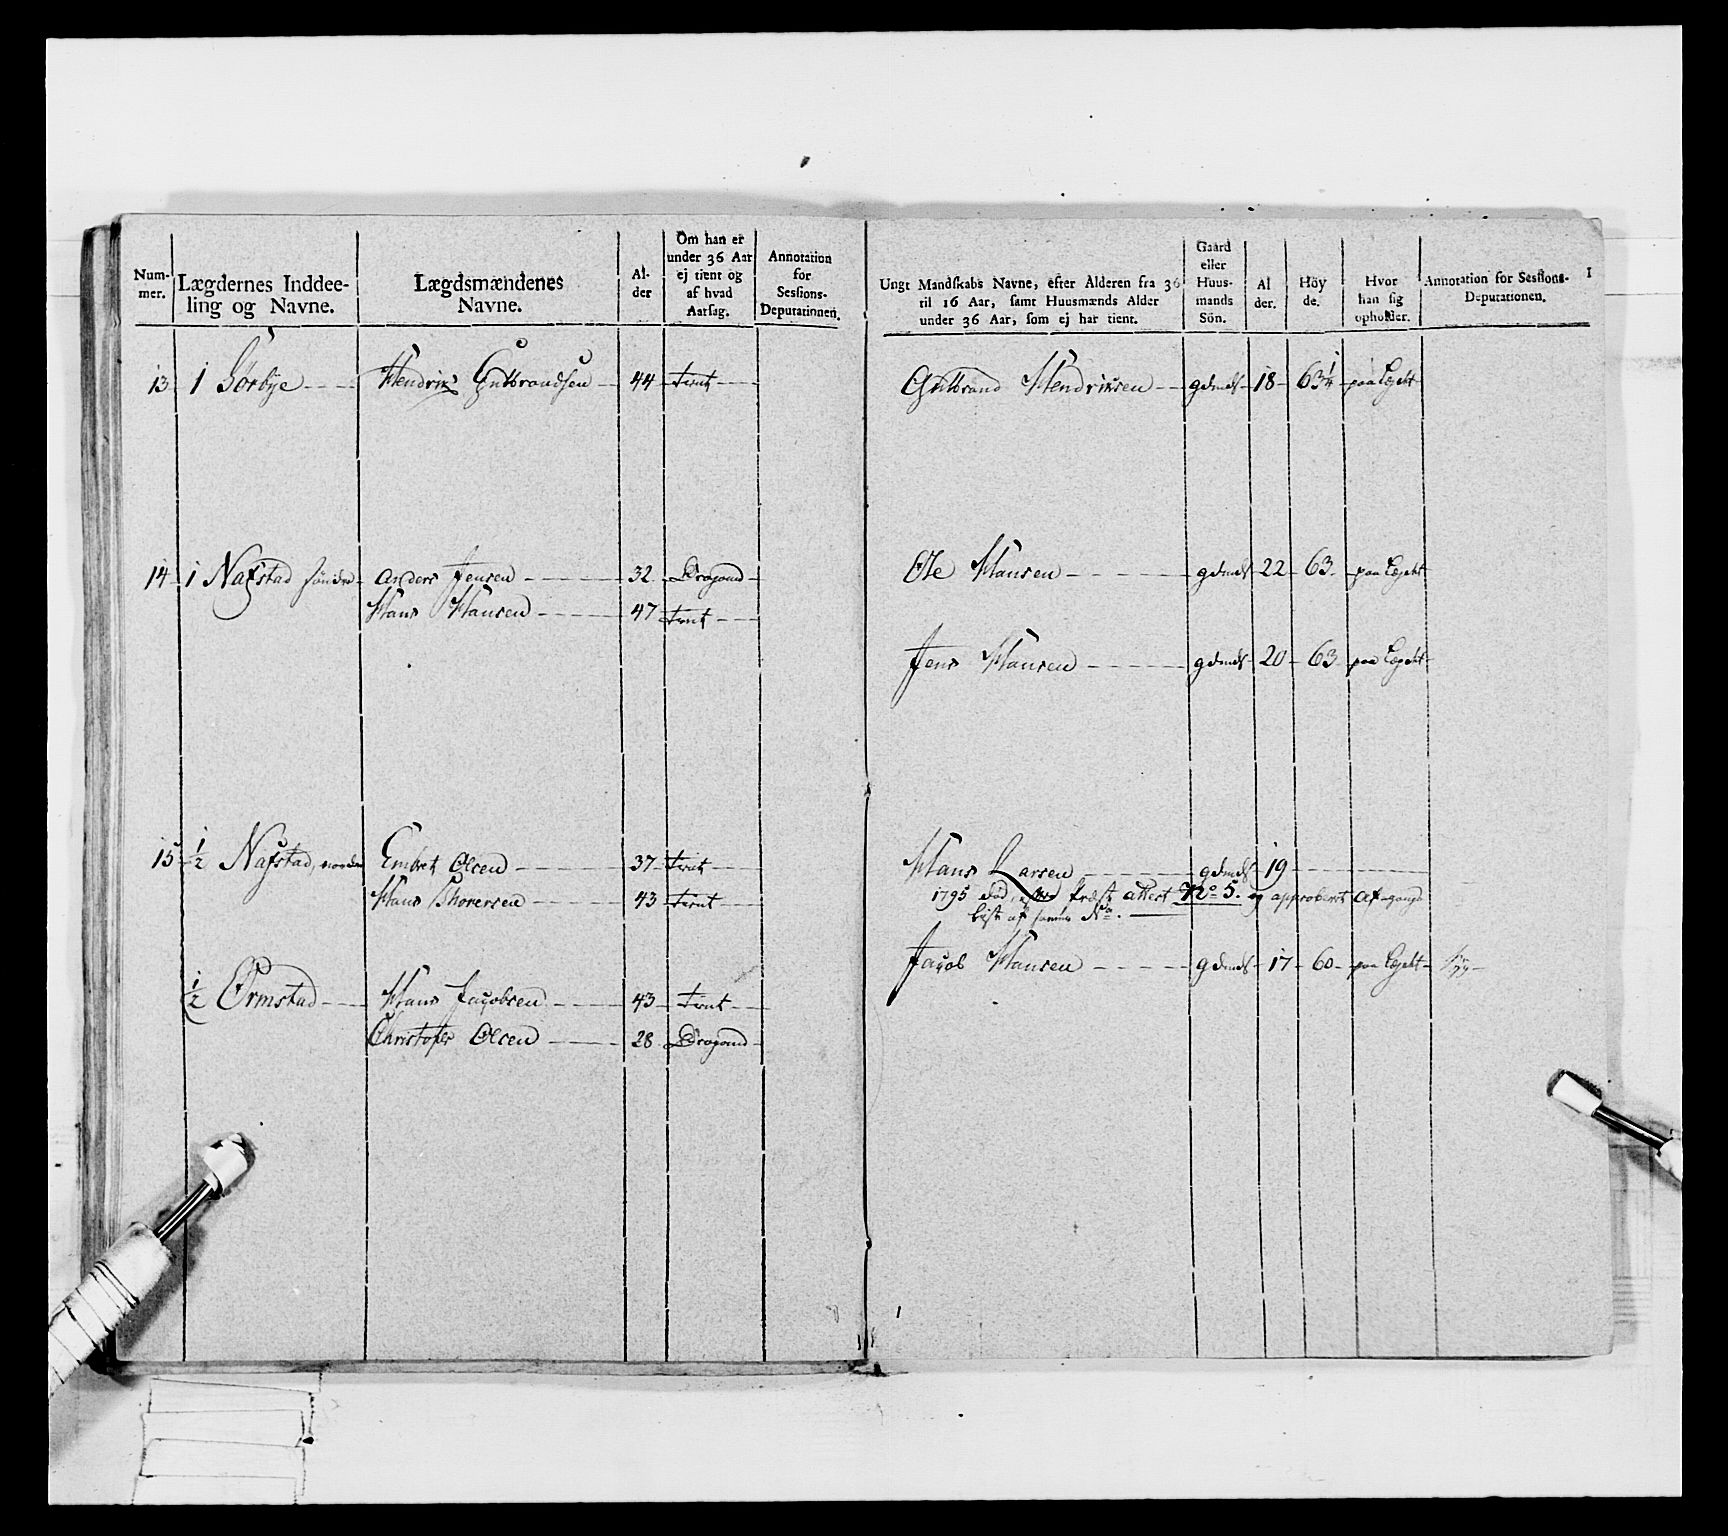 Num-
mer.
Lægdernes Inddee-
ling og Navne.
Lægdsmændenes
Navne.
Al-
der
Om han er
under 36 Aar
ej tient og
af hvad
Aarsag.
Annotation
for
Sessions-
Deputationen.
13 1 Sørbye Hendrik Gulbrandsen 44 tient
14 1 Nafstad søndre Anders Jensen 32 Dragoud
Hans Hansen 47 tient
15 1/2 Nafstad, nordre Embret Olsen 37 tient
Hans Thoresen 43 tient
1/2 Ormstad Hans Jacobsen 43 tient
Christofer Olsen 28 Dragoud
Ungt Mandskabs Navne, efter Alderen fra 36
til 16 Aar, samt Huusmænds Alder
under 36 Aar, som ej har tient.
Gaard
eller
Huus-
mands
Sön.
Al
der.
Höy
de.
Hvor
han sig
opholder.
Annotation for Sessions-
Deputationen.
1
Gulbrand Hendriksen gdmds 18 63 1/4 paa Lægdet
Ole Hansen gdmds 22 63 paa Lægdet
Jens Hansen gdmds 20 63 paa Lægdet
Hans Larsen gdmds 19
1795 død, Præst attest No 5. og approberet Afgangs
liste af samme No.
Jacob Hansen gdmds 17 60 paa Lægdet